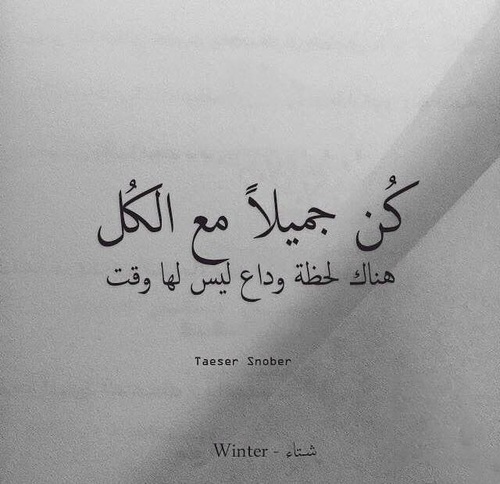 كُن جميلاً مع الكُل
هناك لحظة وداع ليس لها وقت
Taeser Snober
Winter - شتاء